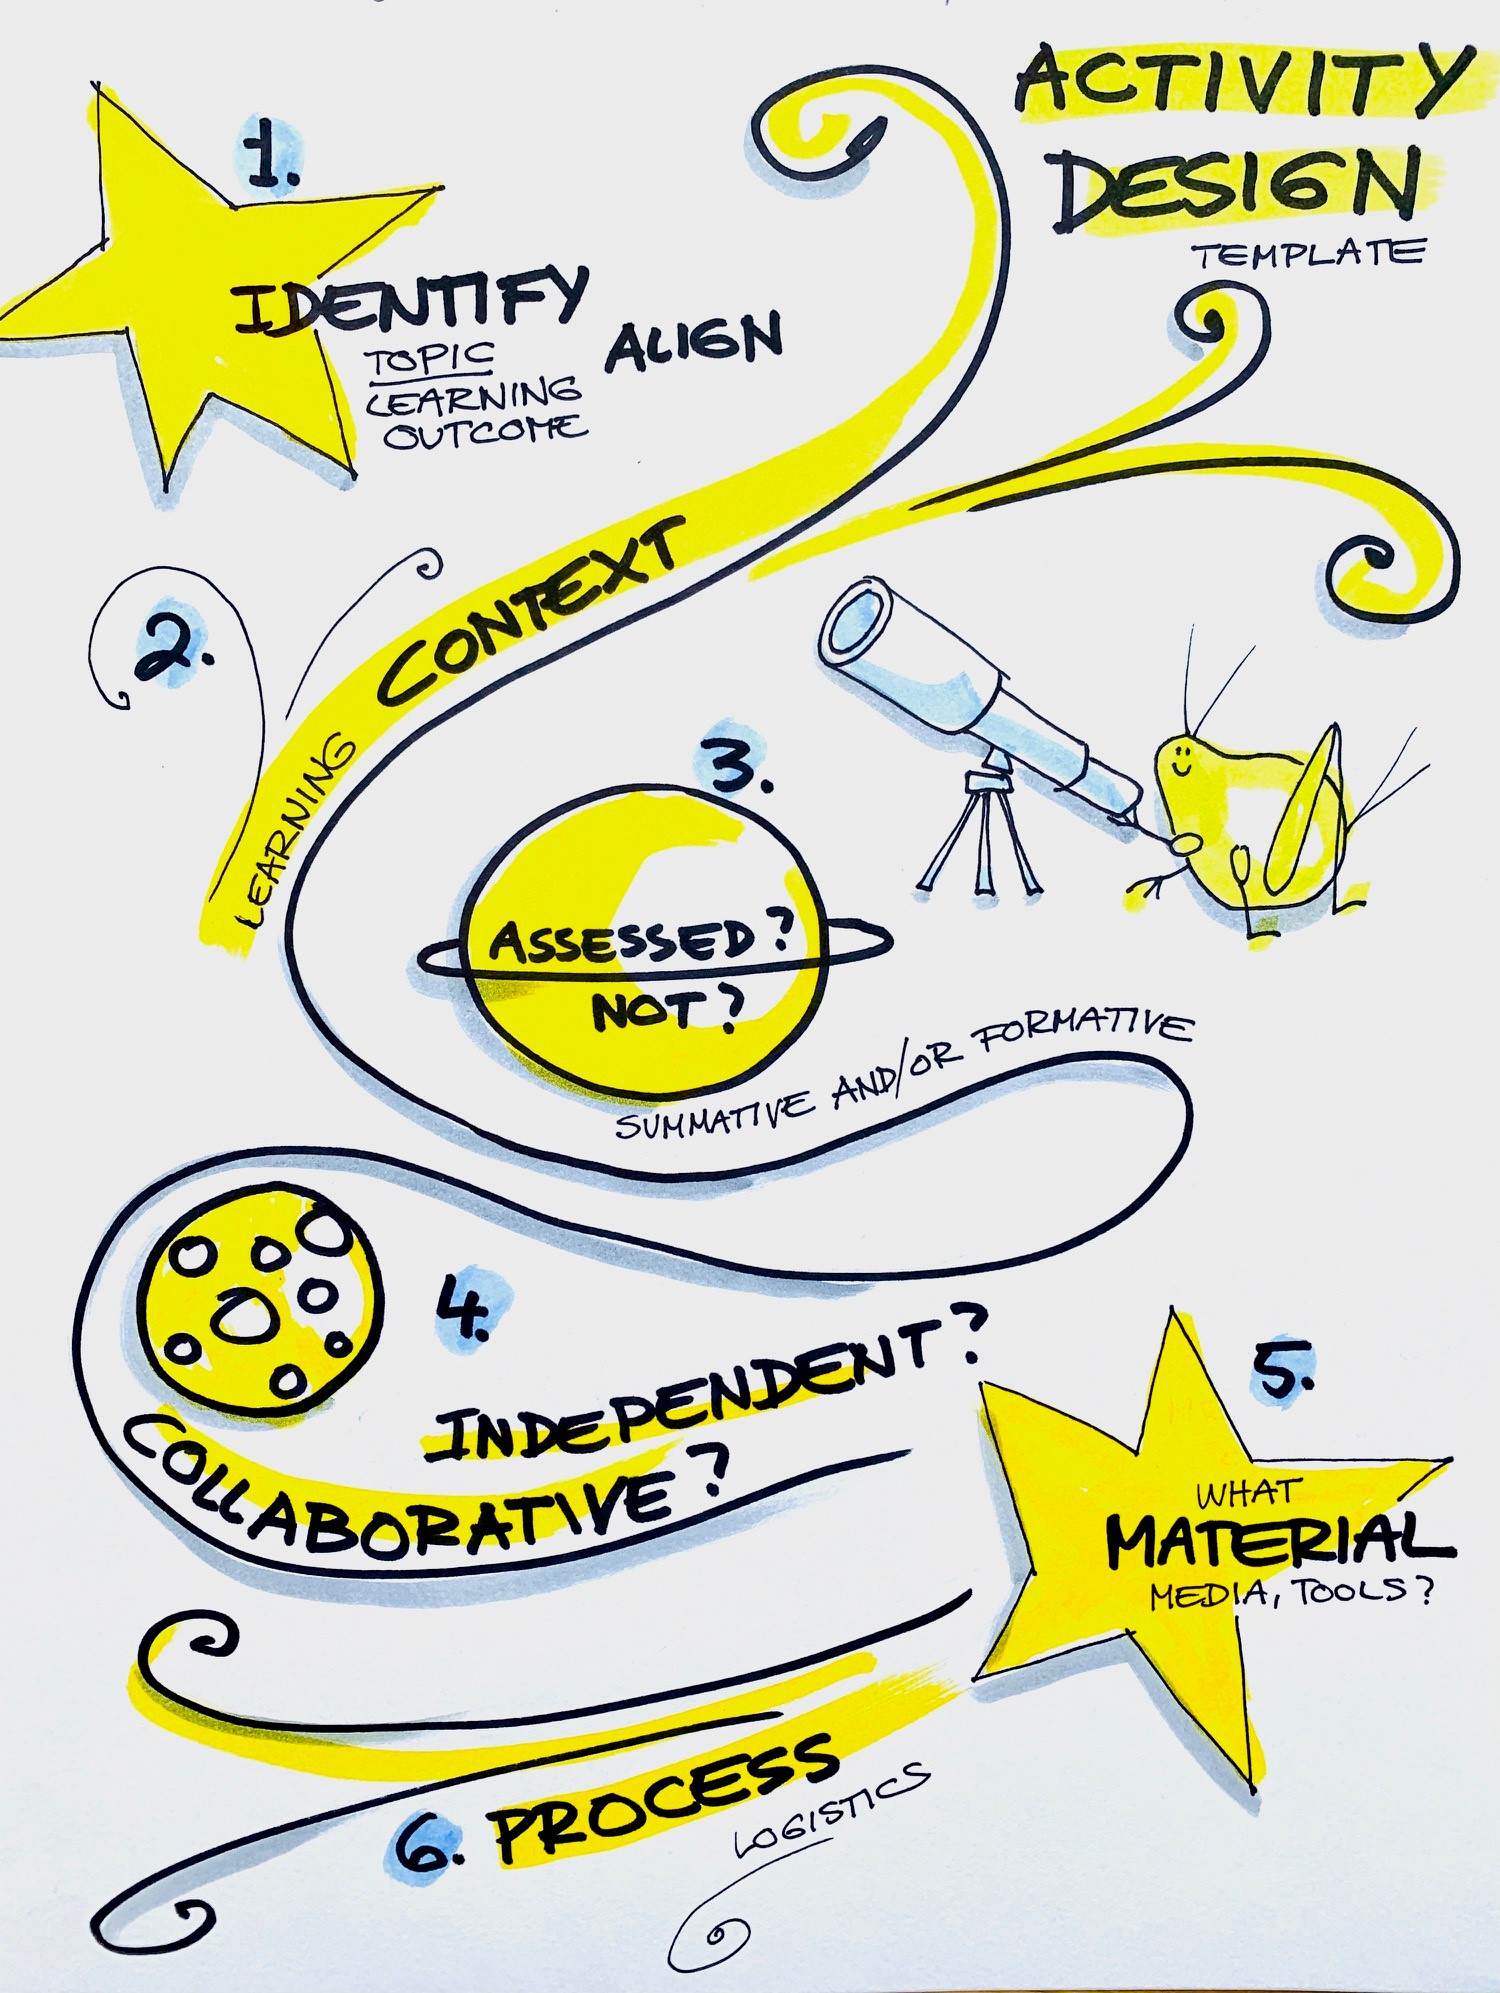 ACTIVITY
DESIGN
TEMPLATE
1.
IDENTIFY
TOPIC
LEARNING
OUTCOME
ALIGN
2.
LEARNING CONTEXT
3.
ASSESSED?
NOT?
SUMMATIVE AND/OR FORMATIVE
4.
INDEPENDENT?
COLLABORATIVE?
5.
WHAT
MATERIAL
MEDIA, TOOLS?
6. PROCESS
LOGISTICS